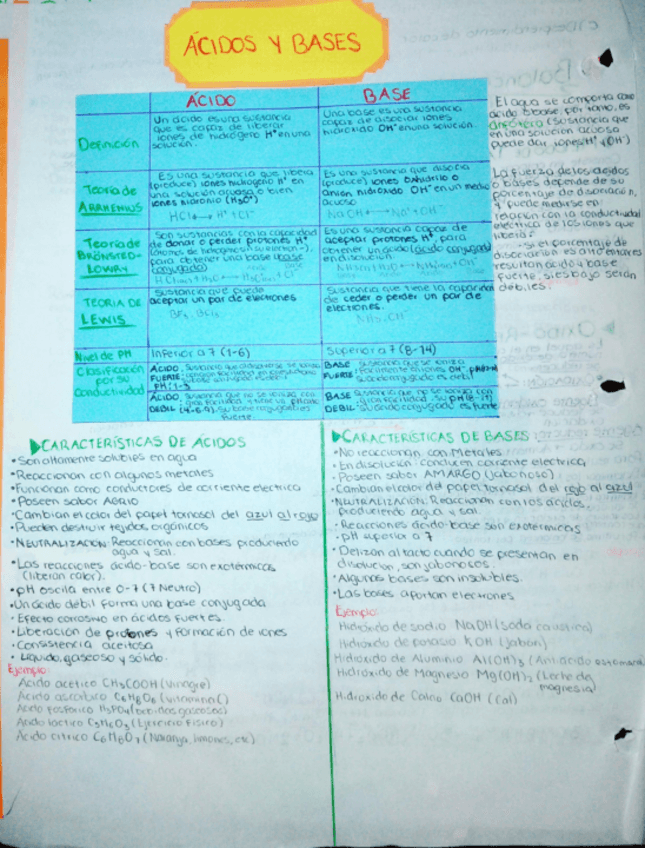 ÁCIDOS Y BASES
ÁCIDO
BASE
Definición
Un ácido es una sustancia
que es capaz de liberar
iones de hidrógeno H⁺ en una
solución.
Una base es una sustancia
capaz de disociar iones
hidróxido OH⁻ en una solución.
Teoría de
ARRHENIUS
Es una sustancia que libera
(produce) iones hidrógeno H⁺ en
una solución acuosa o bien
iones hidronio (H₃O⁺)
HCl → H⁺ + Cl⁻
Es una sustancia que disocia
(produce) iones oxhidrilo o
anión hidróxido OH⁻ en un medio
acuoso
NaOH → Na⁺ + OH⁻
Teoría de
BRÖNSTED-
LOWRY
Son sustancias con la capacidad
de donar o perder protones H⁺
para obtener una base (base
conjugada)
Es una sustancia capaz de
aceptar protones H⁺, para
obtener un ácido (ácido conjugado)
en disolución.
TEORIA DE
LEWIS
Sustancia que puede
aceptar un par de electrones
BF₃, BCl₃
Sustancia que tiene la capacidad
de ceder o perder un par de
electrones.
Nivel de PH
Inferior a 7 (1-6)
Superior a 7 (8-14)
Clasificación
por su
Conductividad
ÁCIDO
FUERTE:
PH: 1-3
BASE
FUERTE:
su ácido conjugado es débil
ÁCIDO
DEBIL
fuerte.
BASE
DEBIL
su ácido conjugado es fuerte
El agua se comporta como
ácido o base, por tanto, es
anfótera (sustancia que
en una solución acuosa
puede dar iones H⁺ (OH⁻)
La fuerza de los ácidos
o bases depende de su
porcentaje de disociación,
y puede medirse en
relación con la conductividad
eléctrica de los iones que
libera:
-Si el porcentaje de
disociación es alto entonces
resultan ácido y base
fuerte, si es bajo serán
débiles.
CARACTERÍSTICAS DE ACIDOS
•Son altamente solubles en agua
•Reaccionan con algunos metales
•Funcionan como conductores de corriente electrica
•Poseen sabor AGRIO
•Cambian el color del papel tornasol del azul al rojo
•Pueden destruir tejidos orgánicos
•NEUTRALIZACION: Reaccionan con bases produciendo
agua y sal.
•Las reacciones ácido-base son exotérmicas
(liberan calor).
•pH oscila entre 0-7 (7 Neutro)
•Un ácido debil forma una base conjugada
•Efecto corrosivo en ácidos fuertes.
•Liberación de protones y formación de iones
•Consistencia aceitosa
•Líquido, gaseoso y sólido.
Ejemplo:
Ácido acético CH₃COOH (Vinagre)
Ácido ascórbico C₆H₈O₆ (vitamina C)
Ácido fosforico H₃PO₄ (bebidas gaseosas)
Ácido láctico C₃H₆O₃ (Ejercicio físico)
Ácido cítrico C₆H₈O₇ (Naranja, limones, etc)
CARACTERÍSTICAS DE BASES
•No reaccionan con Metales
•En disolución: conducen corriente electrica
•Poseen sabor AMARGO (jabonoso)
•Cambian el color del papel tornasol del rojo al azul
•NEUTRALIZACIÓN: Reaccionan con los ácidos,
produciendo agua y sal
•Reacciones ácido-base son exotérmicas
•pH superior a 7
•Delizan al tacto cuando se presentan en
disolución, son jabonosos.
•Algunas bases son insolubles.
•Las bases aportan electrones
Ejemplo:
Hidróxido de sodio NaOH (Soda caústica)
Hidróxido de potasio KOH (jabón)
Hidróxido de Aluminio Al(OH)₃ (Antiácido estomacal
Hidróxido de Magnesio Mg(OH)₂ (Leche de
magnesia)
Hidróxido de Calcio CaOH (Cal)